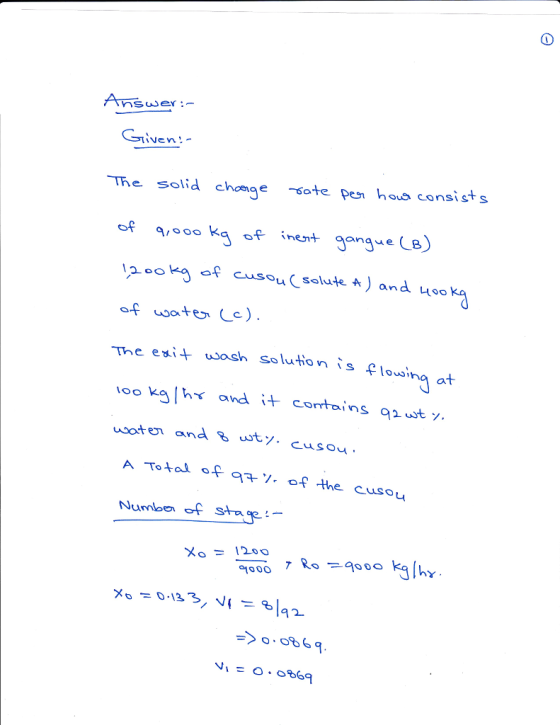 ①
Answer:-
Given:-
The solid charge rate per hour consists
of 9,000 kg of inert gangue (B)
1,200 kg of CuSO4 (solute A) and 400 kg
of water (C).
The exit wash solution is flowing at
100 kg/hr and it contains 92 wt %.
water and 8 wt%. CuSO4.
A Total of 97 %. of the CuSO4
Number of stage:-
X0 = 1200/9000, R0 = 9000 kg/hr.
X0 = 0.133, V1 = 8/92
=> 0.0869.
V1 = 0.0869